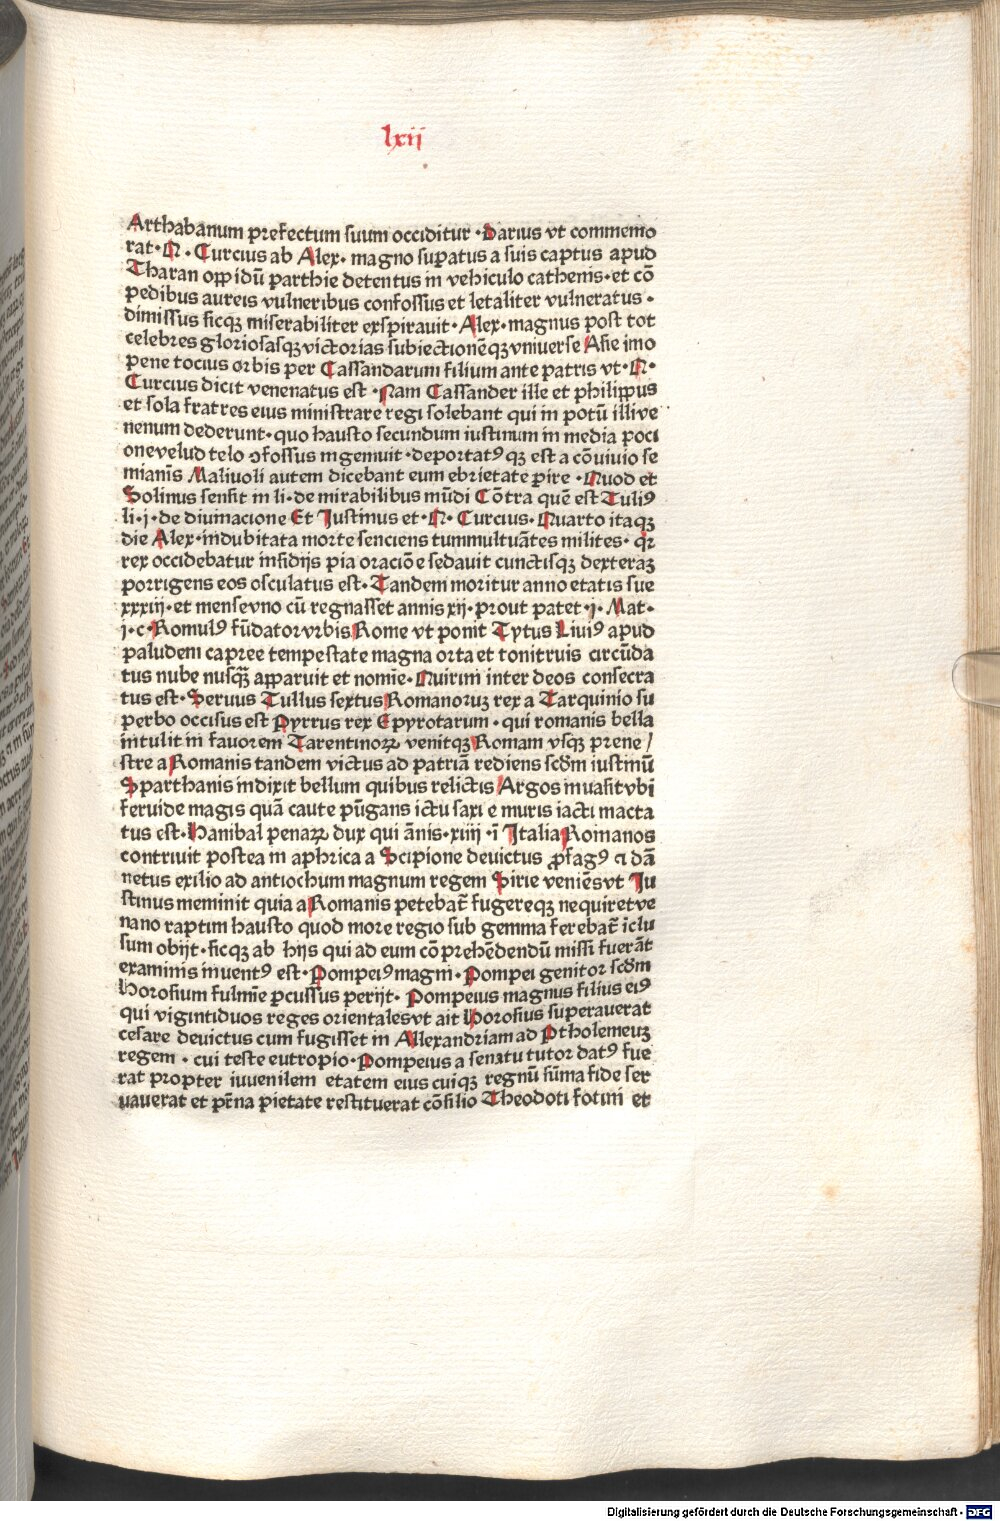 lxii
Arthabanum prefectum suum occiditur · Darius vt commemo
rat · Q · Curcius ab Alex · magno suꝑatus a suis captus apud
Tharan opp idū parthie detentus in vehiculo cathenis · et cō
pedibus aureis vulneribus confossus et letaliter vulneratus ·
dimissus sicqꝫ miserabiliter exspirauit · Alex · magnus post tot
celebres gloriosasqꝫ victorias subiectionēqꝫ vniuerse Asie imo
pene tocius orbis per Cassandarum filium ante patris vt · Q ·
Curcius dicit venenatus est · Nam Cassander ille et philippus
et sola fratres eius ministrare regi solebant qui in potū illi ve
nenum dederunt · quo hausto secundum iustinum in media poci
one velud telo ꝯfossus ingemuit · deportatꝰ qꝫ est a cōuiuio se
mianīs Maliuoli autem dicebant eum ebrietate ꝑire · Quod et
Solinus sensit in li · de mirabilibus mūdi Cōtra quē est Tuliꝰ
li · i · de diuinacione Et Iustinus et · Q · Curcius · Quarto itaqꝫ
die Alex · indubitata morte senciens tummultuātes milites · qr
rex occidebatur insidijs pia oraciōe sedauit cunctisqꝫ dexteraꝫ
porrigens eos osculatus est · Tandem moritur anno etatis sue
xxxiij · et mense vno cū regnasset annis xij · prout patet · j · Mat ·
j · c · Romulꝰ fūdator vrbis Rome vt ponit Tytus Liuiꝰ apud
paludem capree tempestate magna orta et tonitruis circūda
tus nube nusqꝫ̄ apparuit et nomīe · Quirini inter deos consecra
tus est · Seruus Tullus sextus Romanoruꝫ rex a Tarquinio su
perbo occisus est Pyrrus rex Epyrotarum · qui romanis bella
intulit in fauorem Tarentinoꝝ venitqꝫ Romam vsqꝫ prene /
stre a Romanis tandem victus ad patriā rediens scdm iustinū
Sparthanis indixit bellum quibus relictis Argos inuasit vbi
feruide magis quā caute pūgans ictu saxi e muris iacti macta
tus est · Hanibal penaꝝ dux qui ānis · xviij · ī Italia Romanos
contriuit postea in aphrica a Scipione deuictus ꝓfagꝰ ⁊ dā
netus exilio ad antiochum magnum regem Sirie veniēs vt Iu
stinus meminit quia a Romanis petebat̄ fugereqꝫ nequiret ve
nano raptim hausto quod more regio sub gemma ferebat̄ īclu
sum obijt · sicqꝫ ab hijs qui ad eum cō prehēdendū missi fuerāt
examinis inuentꝰ est · Pompeiꝰ magni · Pompei genitor scdm
Horosium fulmīe ꝑcussus perijt · Pompeius magnus filius eiꝰ
qui vigintiduos reges orientales vt ait Horosius superauerat
cesare deuictus cum fugisset in Allexandriam ad Ptholemeuꝫ
regem · cui teste eutropio · Pompeius a senatu tutor datꝰ fue
rat propter iuuenilem etatem eius cuiqꝫ regnū sūma fide ser
uauerat et pr̄na pietate restituerat cōsilio Theodoti fotini et
Digitalisierung gefördert durch die Deutsche Forschungsgemeinschaft - DFG